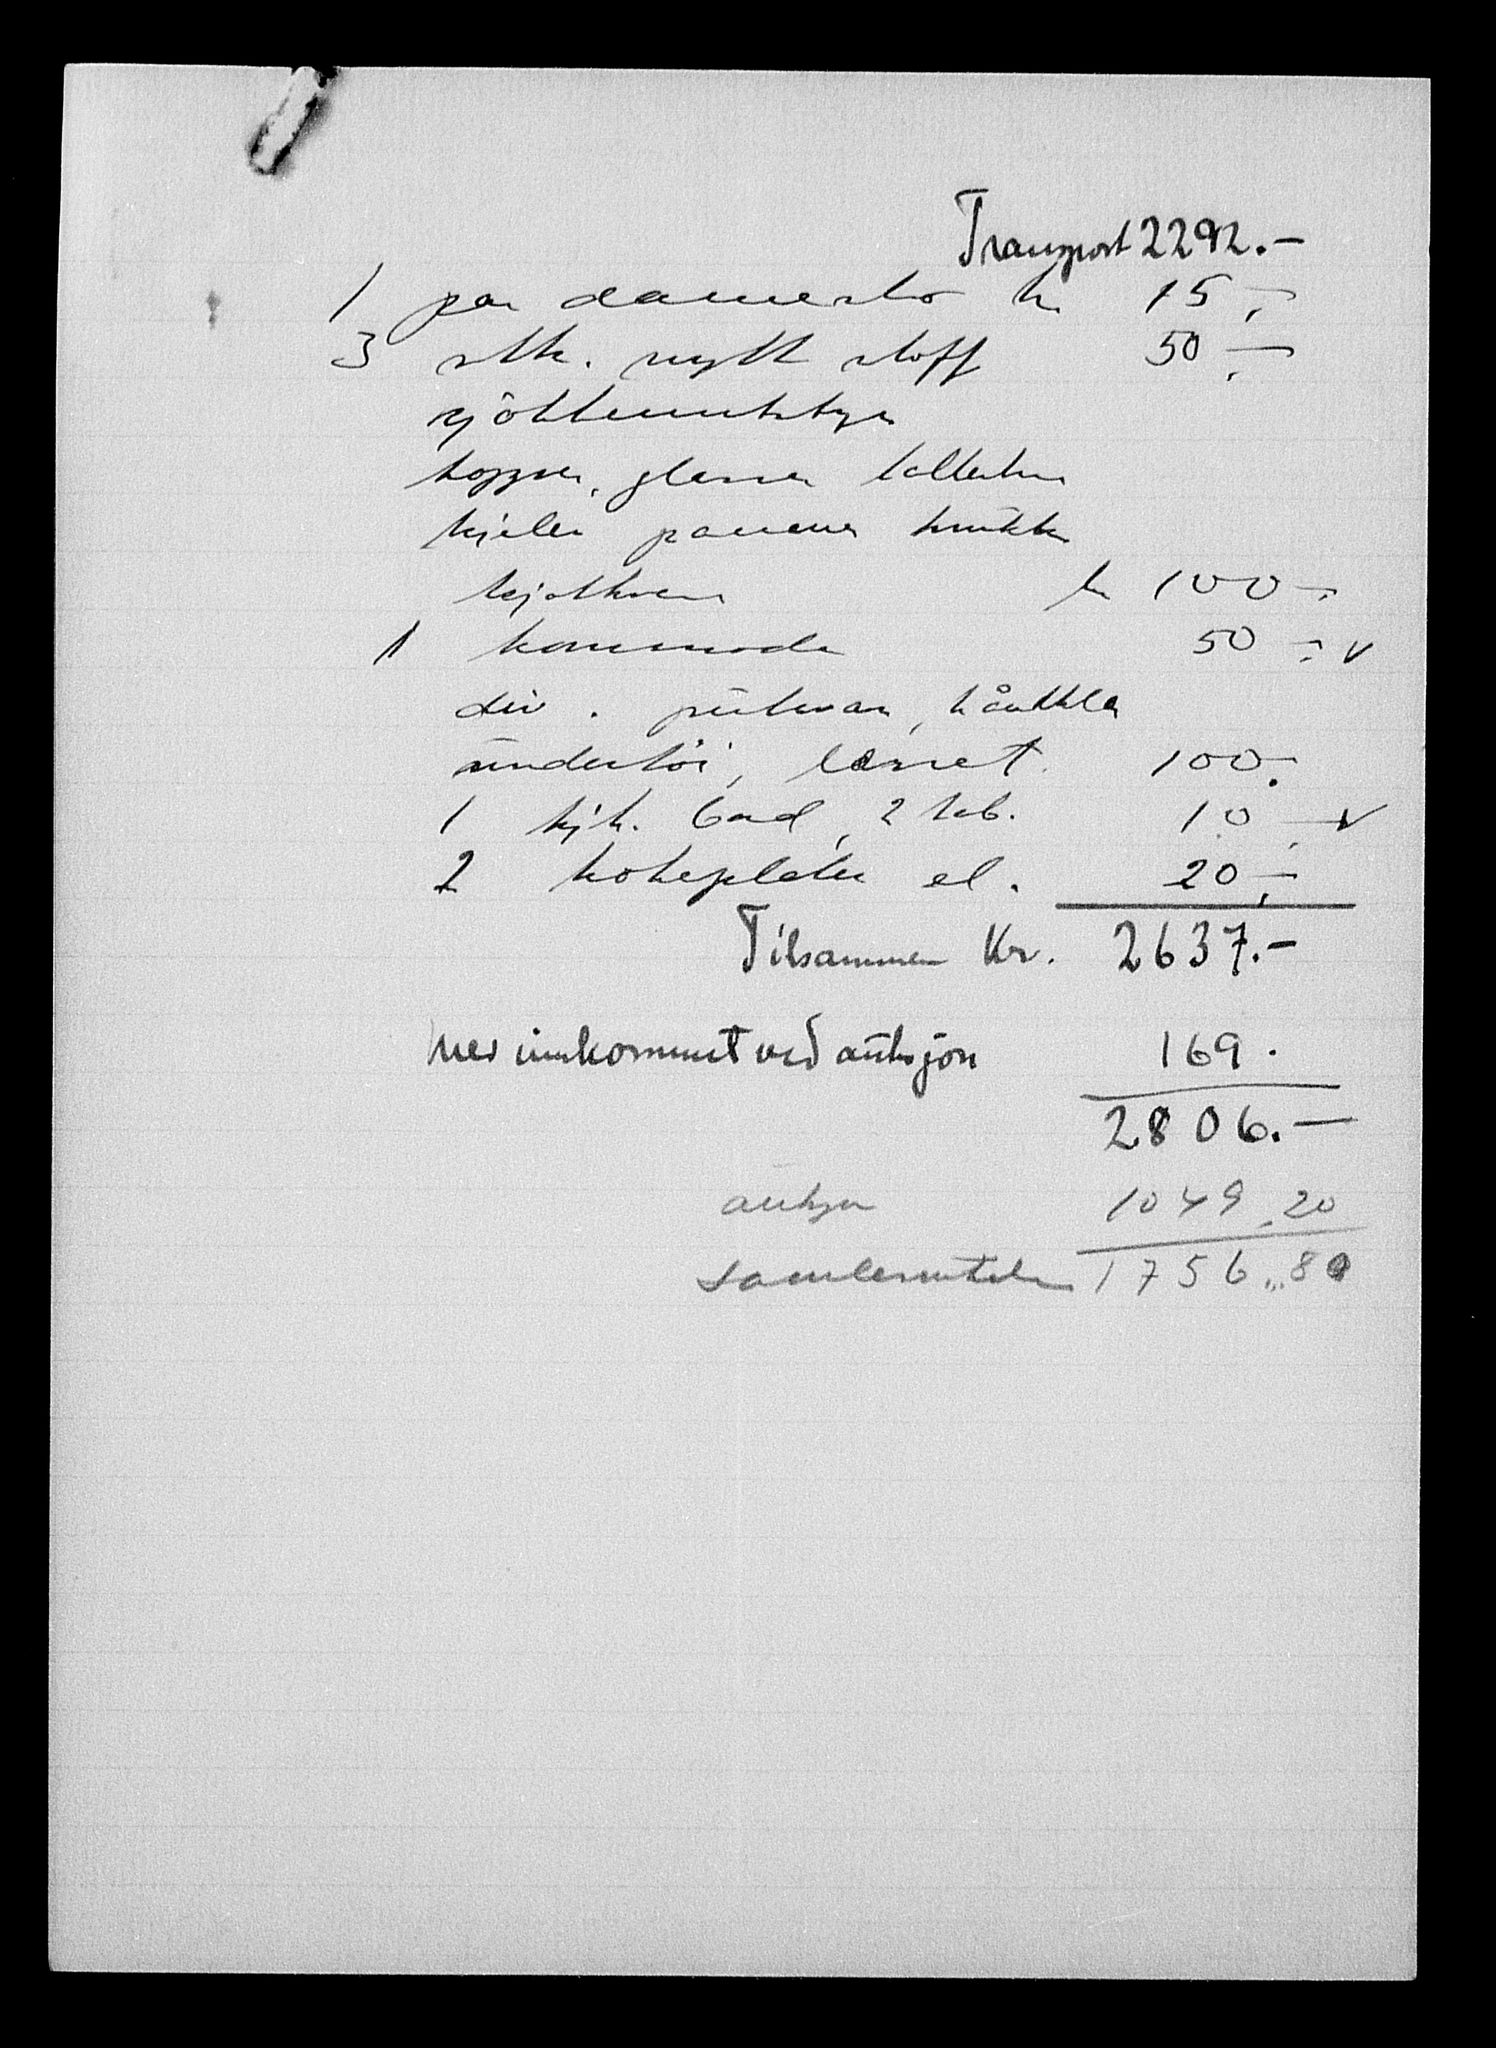 Transport 2292.-
1 par damesko kr 15,-
3 stk. nytt stoff 50,-
kjökkenutstyr
kopper, glasser tallerken
kjeler panner krukker
kjøttkvern kr 100,-
1 kommode 50,- v
div. putevar, håndklær
undertöi, lerret 100,-
1 kjk. bord, 2 tab. 10,- v
2 kokeplater el. 20,-
Tilsammen Kr. 2637.-
Mer innkommet ved auksjon 169.
2806.-
auksjon 1049,20
1756,,80